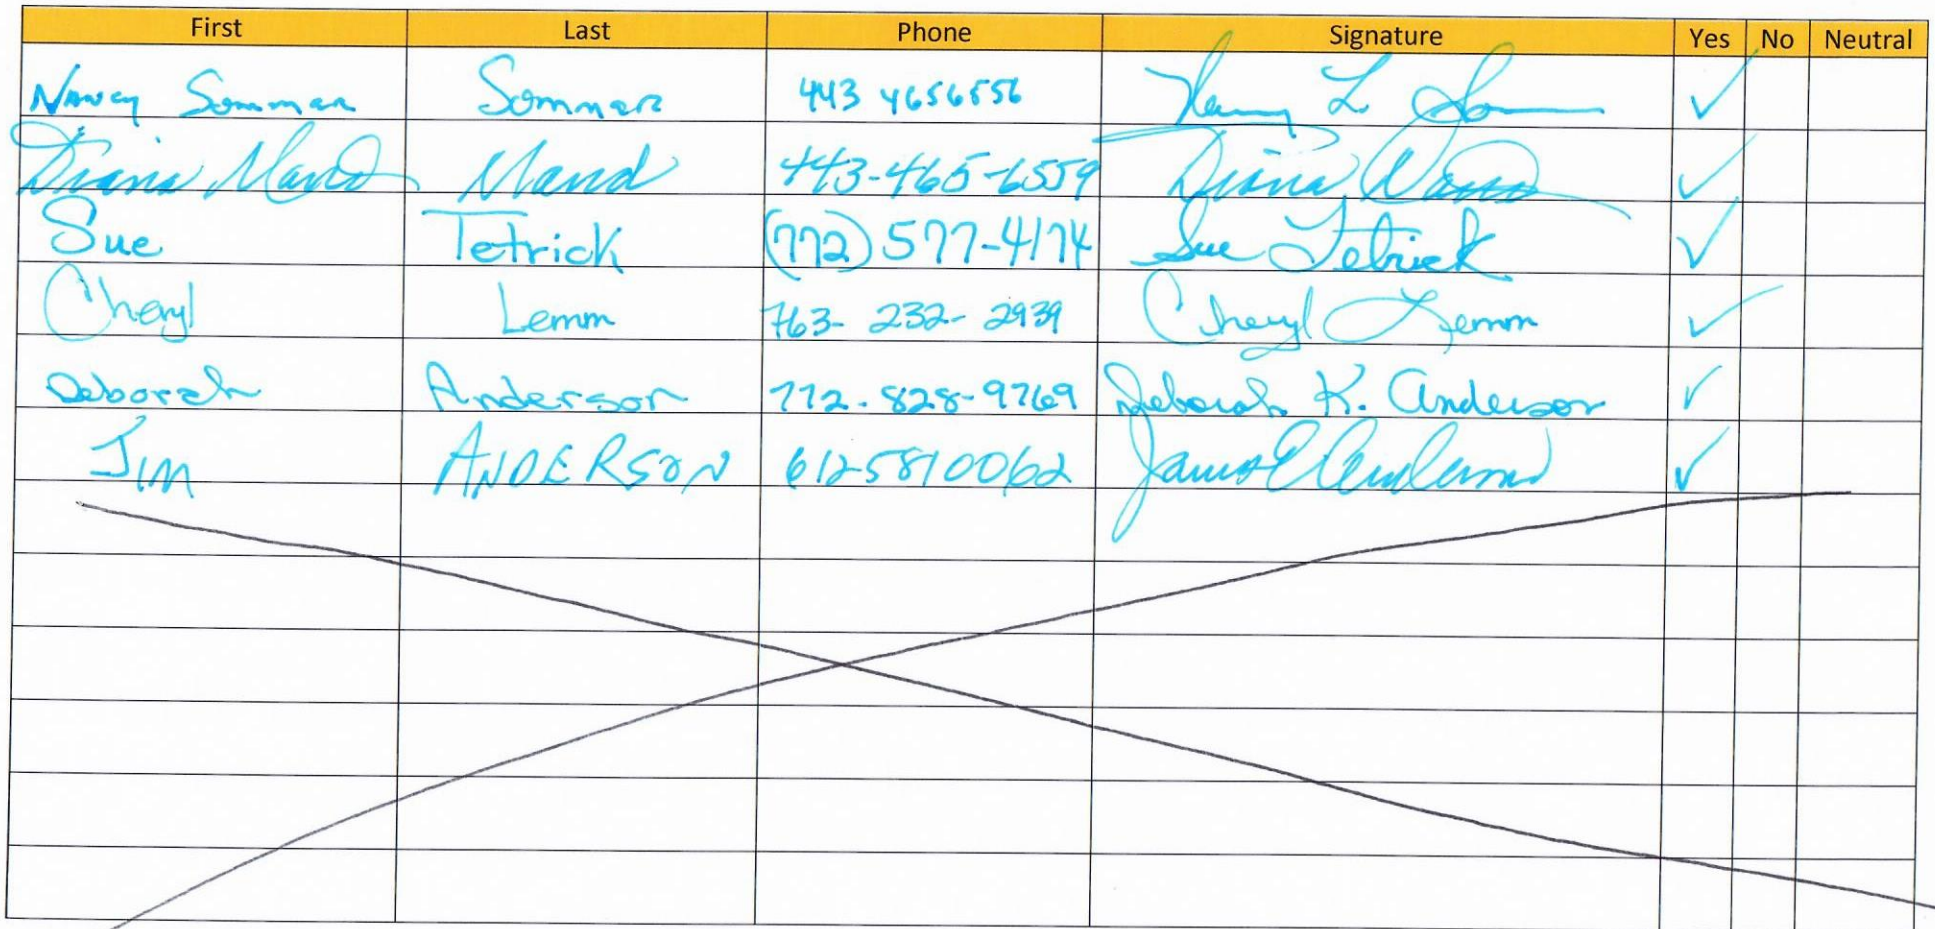 First Last Phone Signature Yes No Neutral
Nancy Sommar Sommar 443 4656556 Nancy L. ✓
Diana Mand Mand 443-465-6559 Diana Mand ✓
Sue Tetrick (772) 577-4174 Sue Tetrick ✓
Cheryl Lemm 763-232-2939 Cheryl Lemm ✓
Deborah Anderson 772-828-9769 Deborah K. Anderson ✓
Jim ANDERSON 6125810062 James E Anderson ✓